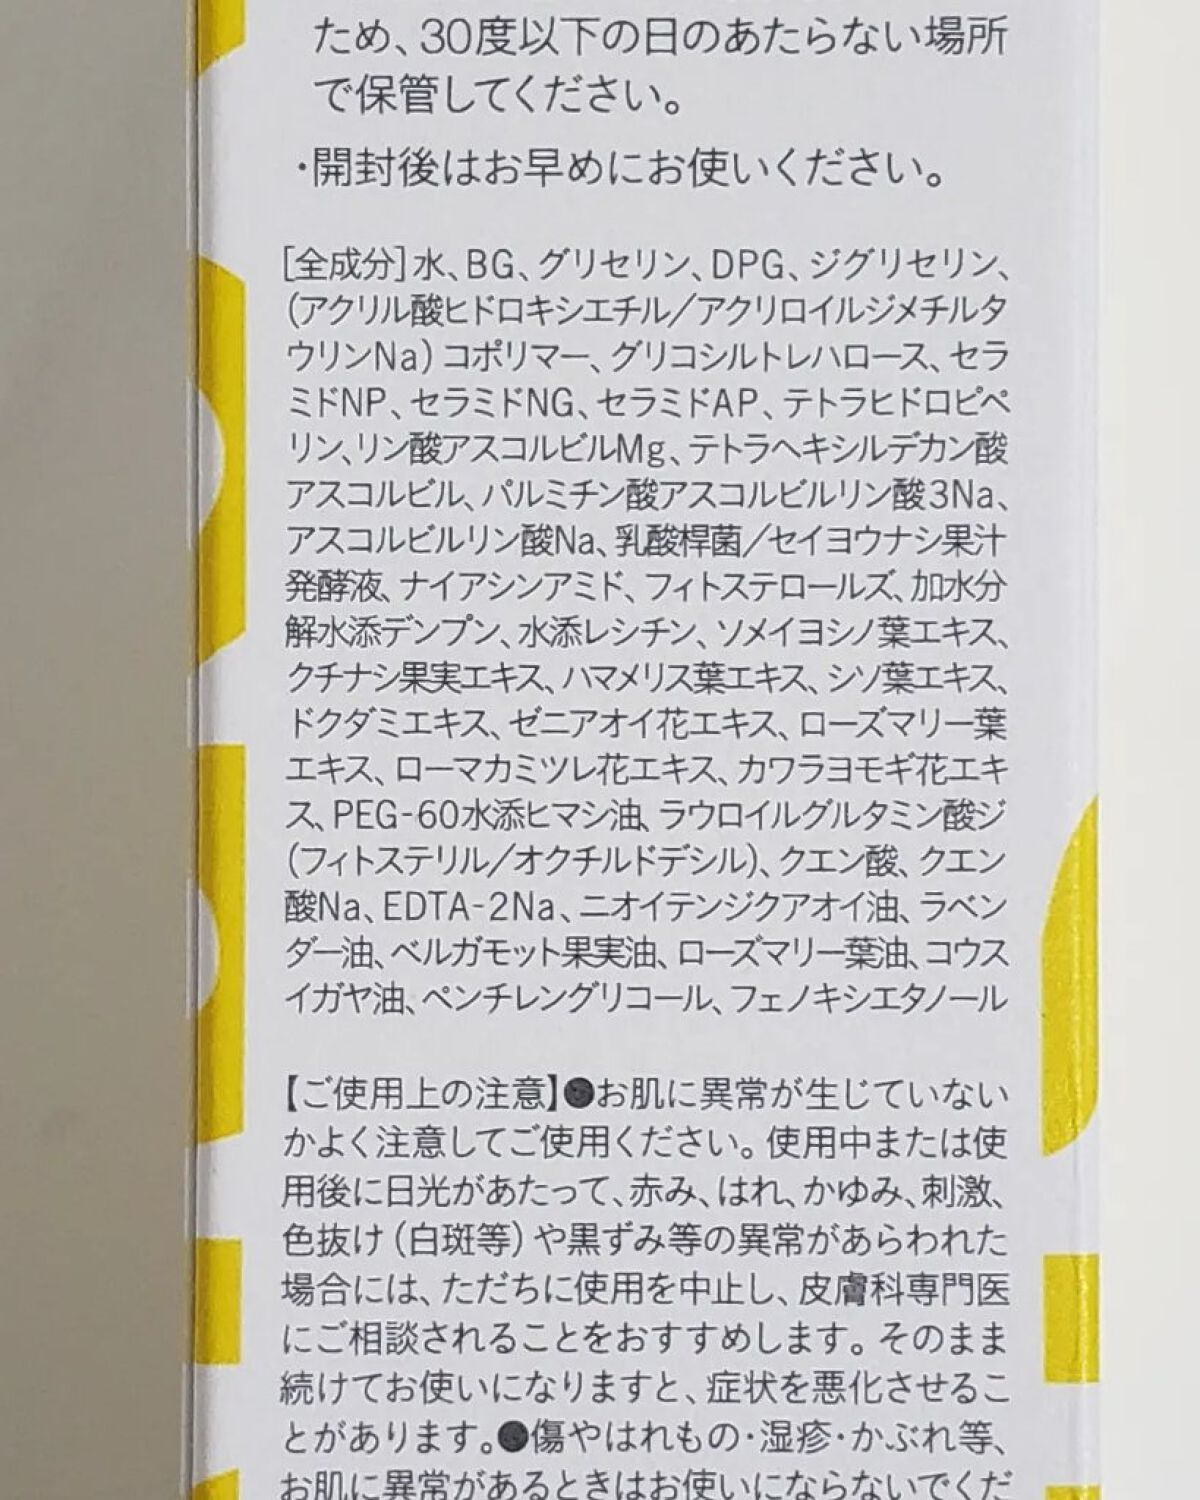 ため、30度以下の日のあたらない場所
で保管してください。
・開封後はお早めにお使いください。
[全成分]水、BG、グリセリン、DPG、ジグリセリン、
(アクリル酸ヒドロキシエチル/アクリロイルジメチルタ
ウリンNa)コポリマー、グリコシルトレハロース、セラ
ミドNP、セラミドNG、セラミドAP、テトラヒドロピペ
リン、リン酸アスコルビルMg、テトラヘキシルデカン酸
アスコルビル、パルミチン酸アスコルビルリン酸3Na、
アスコルビルリン酸Na、乳酸桿菌/セイヨウナシ果汁
発酵液、ナイアシンアミド、フィトステロールズ、加水分
解水添デンプン、水添レシチン、ソメイヨシノ葉エキス、
クチナシ果実エキス、ハマメリス葉エキス、シソ葉エキス、
ドクダミエキス、ゼニアオイ花エキス、ローズマリー葉
エキス、ローマカミツレ花エキス、カワラヨモギ花エキ
ス、PEG-60水添ヒマシ油、ラウロイルグルタミン酸ジ
(フィトステリル/オクチルドデシル)、クエン酸、クエン
酸Na、EDTA-2Na、ニオイテンジクアオイ油、ラベン
ダー油、ベルガモット果実油、ローズマリー葉油、コウス
イガヤ油、ペンチレングリコール、フェノキシエタノール
【ご使用上の注意】●お肌に異常が生じていない
かよく注意してご使用ください。使用中または使
用後に日光があたって、赤み、はれ、かゆみ、刺激、
色抜け(白斑等)や黒ずみ等の異常があらわれた
場合には、ただちに使用を中止し、皮膚科専門医
にご相談されることをおすすめします。そのまま
続けてお使いになりますと、症状を悪化させるこ
とがあります。●傷やはれもの・湿疹・かぶれ等、
お肌に異常があるときはお使いにならないでくだ